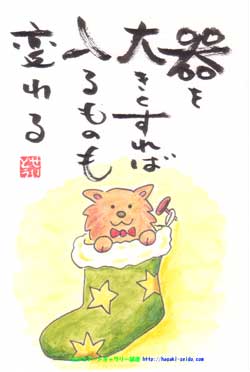 器を
大きくすれば
入るものも
変われる
http://hagaki-seido.com/